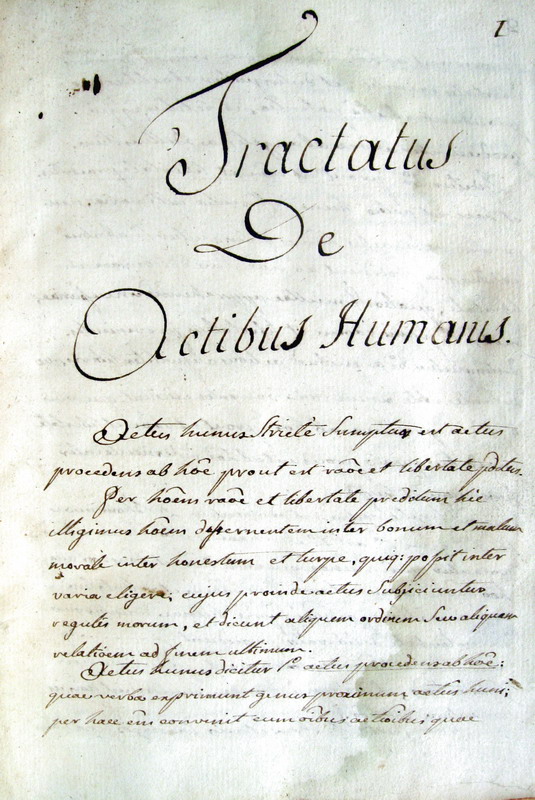 1
Tractatus
De
Actibus Humanis.
Actus hunus Stricte Sumptus est actus
procedens ab hõe prout est raõe et libertate pditus.
Per hõem raõe et libertate preditum hic
illigimus hõem discernentem inter bonum et malum
morale inter honestum et turpe, quiq: possit inter
varia eligere; cujus proinde actus Subjiciuntur
regulis morum, et dicunt aliquem ordinem Seu aliquam
relatioem ad finem ultimum.
Actus hunus dicitur 1º actus procedens ab hõe:
quae verba exprimunt genus proximum actus huni;
per haec eni convenit cum oibus actioibus quae